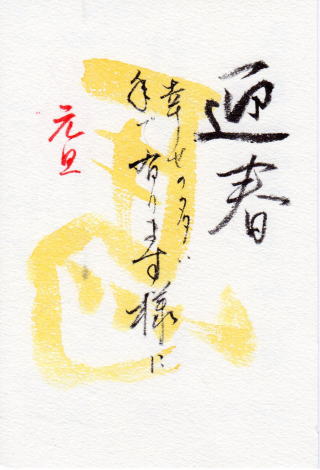 迎春
幸せの多い
年で有ります様に
元旦